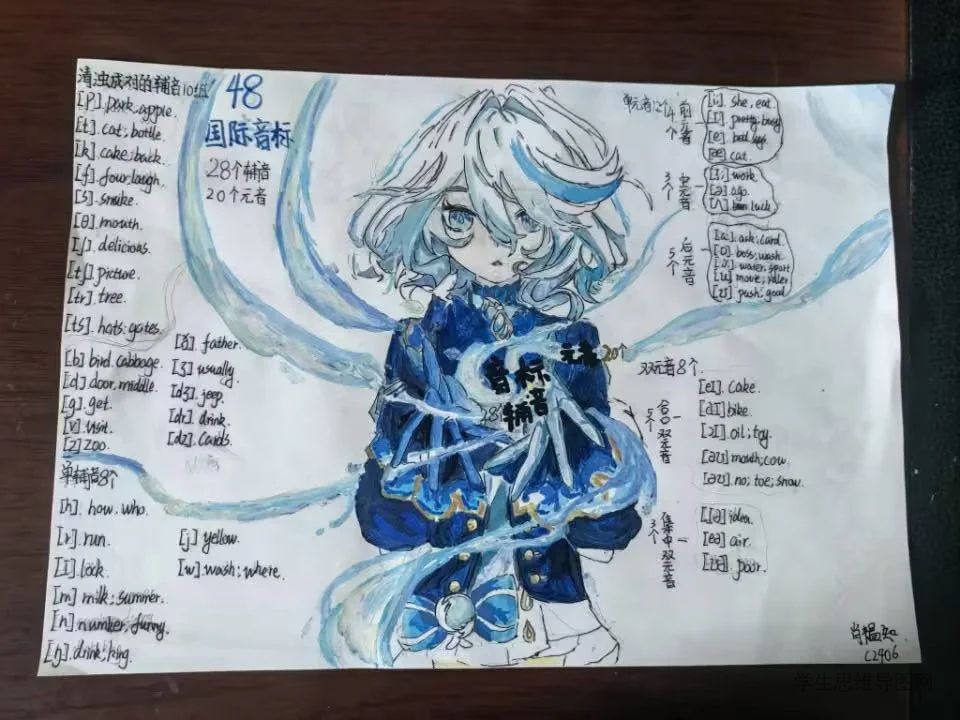 清浊成对的辅音10组
[p].park.apple.
[t].cat;bottle.
[k].cake;back.
[f].four.laugh.
[s].smoke.
[θ].mouth.
[ʃ].delicious.
[tʃ].picture.
[tr].tree.
[ts].hats.gates.
[b]bird.cabbage.
[d]door.middle.
[g].get.
[v].visit.
[z]zoo.
[ð].father.
[ʒ]usually.
[dʒ].jeep.
[dr].drink.
[dz].cards.
单辅音8个
[h].how.who.
[r].run.
[l].lock.
[m]milk;summer.
[n]number.funny.
[ŋ].drink;king.
[j]yellow.
[w].wash;where.
48
国际音标
28个辅音
20个元音
音标
元音20个
28
辅音
单元音12个
4个
前元音
[i:].she.eat.
[ɪ].pretty;busy
[e]
[æ]cat.
3个
中元音
[ɜ:]work.
[ə]ago.
[ʌ]luck.
5个
后元音
[ɑ:].ask;card.
[ɒ].boss;wash.
[ɔ:].water,sport
[u:]movie;
[ʊ].push;good
双元音8个.
5个
合口双元音
[eɪ].cake.
[aɪ]bike.
[ɔɪ].oil;toy.
[aʊ]mouth;cow.
[əʊ].no;toe;snow.
3个
集中双元音
[ɪə]idea.
[eə]air.
[ʊə].poor.
C2406
学生思维导图网